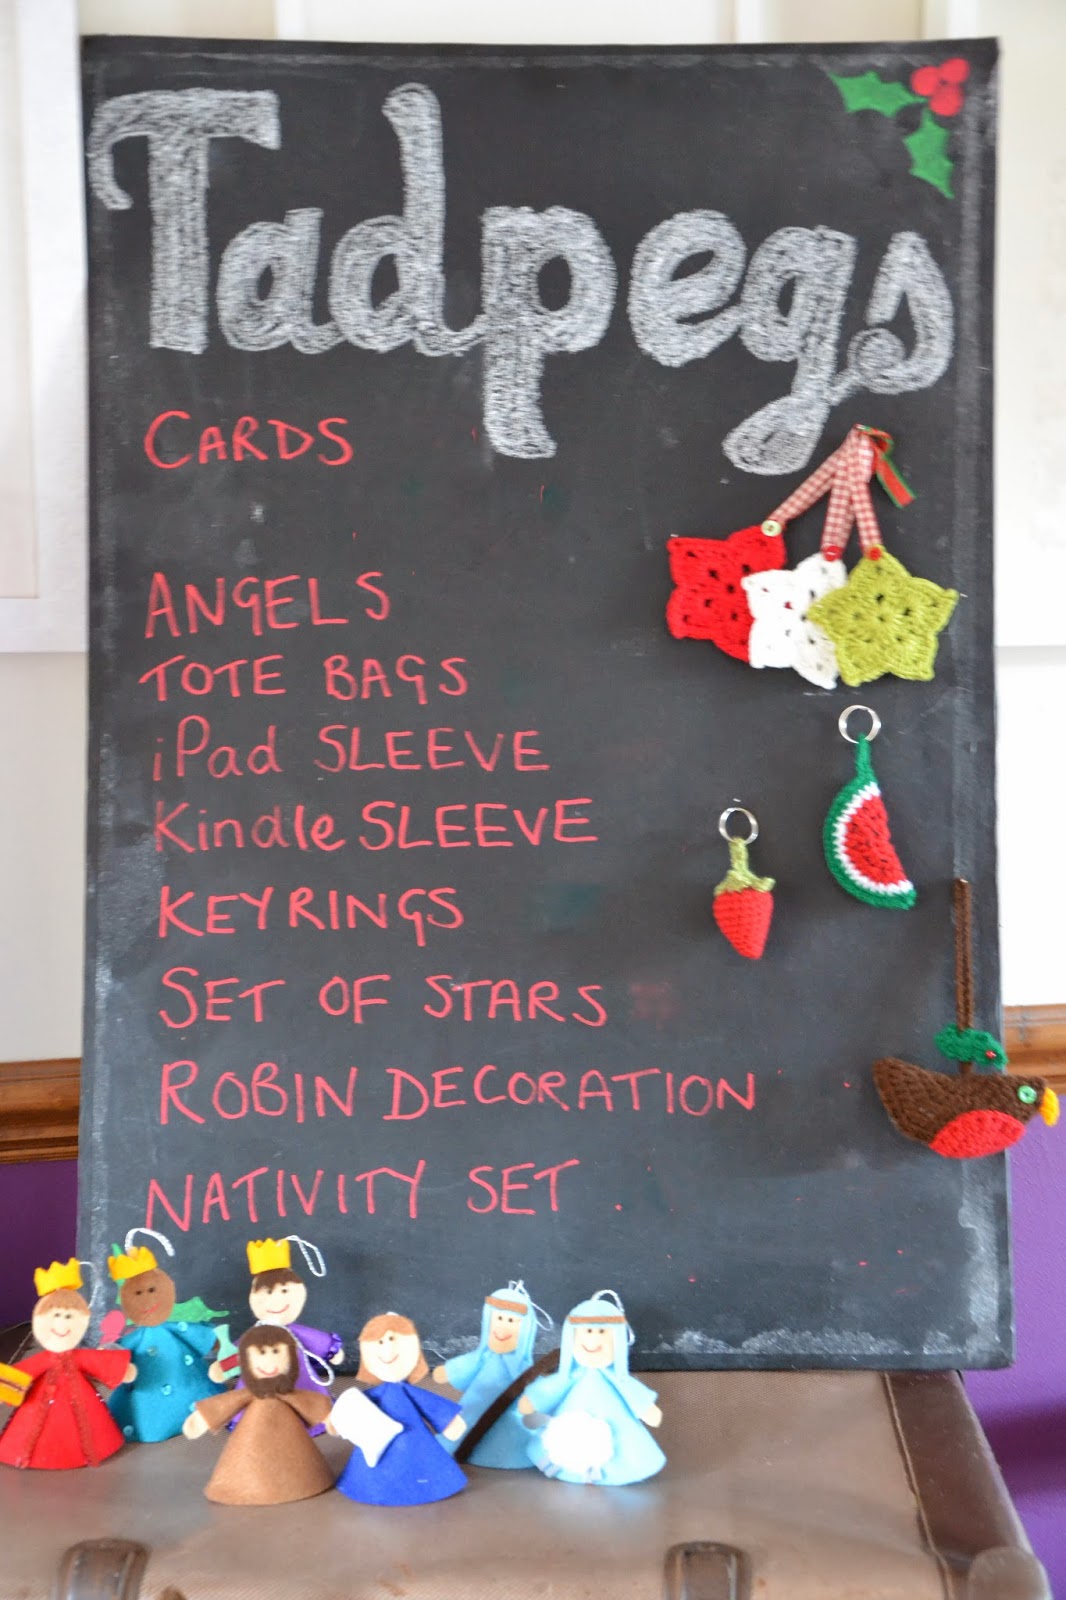 Tadpegs
CARDS
ANGELS
TOTE BAGS
iPad SLEEVE
Kindle SLEEVE
KEYRINGS
SET OF STARS
ROBIN DECORATION
NATIVITY SET .